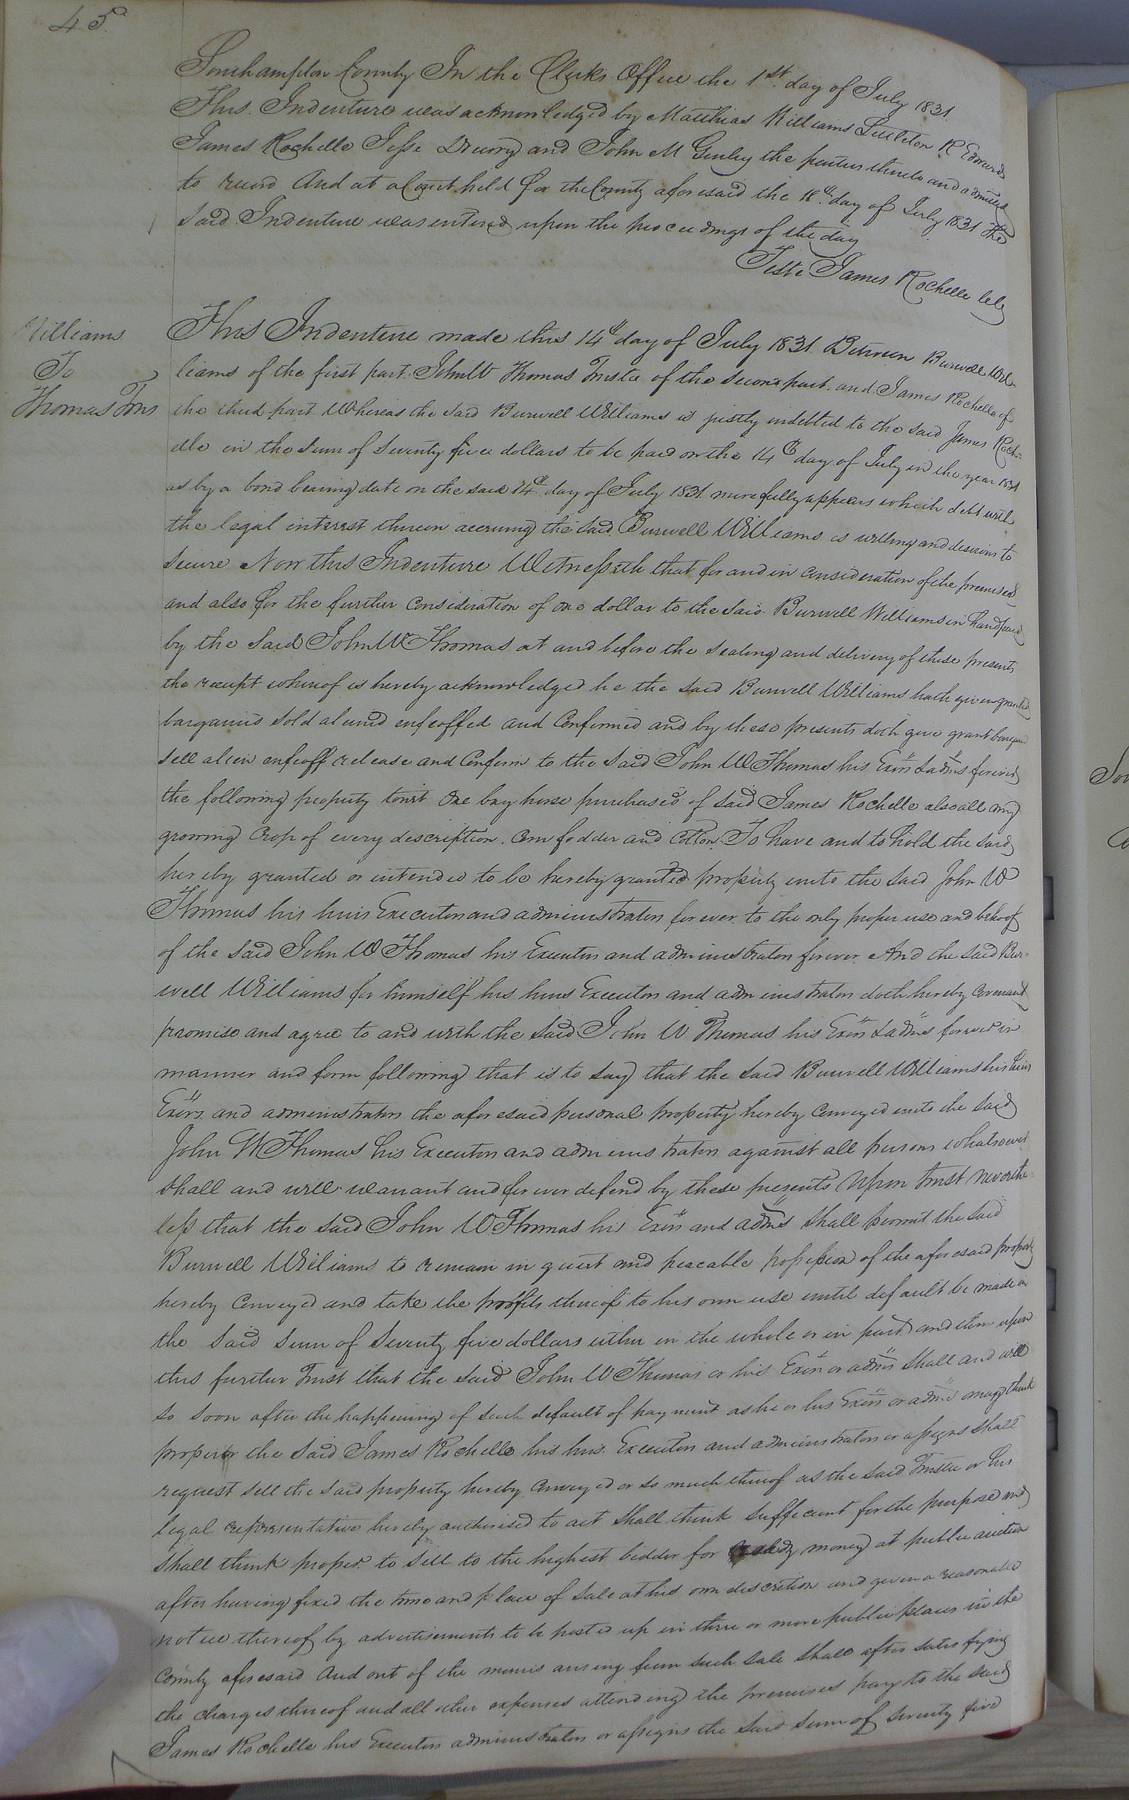 45
Southampton County In the Clerks Office the 1st day of July 1831
This Indenture was acknowledged by Matthias Williams Littleton R Edwards
James Rochelle Jesse Drewry and John M Gurley the parties thereto and admitted
to record And at a Court held for the County aforesaid the 18th day of July 1831 The
said Indenture was entered upon the proceedings of the day
Teste James Rochelle clk
Williams
To
Thomas Trus
This Indenture made this 14th day of July 1831 Between Burwell Wil-
liams of the first part John W Thomas Trustee of the second part and James Rochelle of
the third part Whereas the said Burwell Williams is justly indebted to the said James Roch-
elle in the sum of Seventy five dollars to be paid on the 14th day of July in the year 1831
as by a bond bearing date on the said 14th day of July 1831 more fully appears which debt with
the legal interest thereon accruing the said Burwell Williams is willing and desirous to
secure Now this Indenture Witnesseth that for and in consideration of the premises
and also for the further consideration of one dollar to the said Burwell Williams in hand paid
by the said John W Thomas at and before the sealing and delivery of these presents
the receipt whereof is hereby acknowledged he the said Burwell Williams hath given granted
bargained sold aliend enfeoffed and Confirmed and by these presents doth give grant bargain
sell alien enfeoff release and Confirm to the said John W Thomas his Exors & admrs forever
the following property towit One bay horse purchased of said James Rochelle also all my
growing Crop of every description. Corn fodder and Cotton To have and to hold the said
hereby granted or intended to be hereby granted property unto the said John W
Thomas his heirs Executors and administrators forever to the only proper use and behoof
of the said John W Thomas his Executors and administrators forever And the said Bur-
well Williams for himself his heirs Executors and administrators doth hereby Covenant
promise and agree to and with the said John W Thomas his Exors & admrs forever in
manner and form following that is to say that the said Burwell Williams his heirs
Exors and administrators the aforesaid personal property hereby Conveyed unto the said
John W Thomas his Executors and administrators against all persons whatsoever
shall and will warrant and forever defend by these presents Upon Trust neverthe-
less that the said John W Thomas his Exors and admrs shall permit the said
Burwell Williams to remain in quiet and peacable possession of the aforesaid property
hereby Conveyed and take the proffits thereof to his own use until default be made in
the said sum of Seventy five dollars either in the whole or in part and then upon
this further Trust that the said John W Thomas or his Exors or admrs shall and will
so soon after the happening of such default of payment as he or his Exors or admrs may think
proper or the said James Rochelle his heirs Executors and administrators or assigns shall
request sell the said property hereby Conveyed or so much thereof as the said Trustee or his
legal representative hereby authorised to act shall think sufficient for the purpose and
shall think proper to sell to the highest bidder for ready money at public auction
after having fixed the time and place of sale at his own discretion and given a reasonable
notice thereof by advertisements to be posted up in three or more public places in the
County aforesaid And out of the monies arising from such sale shall after satisfying
the charges thereof and all other expenses attending the premises pay to the said
James Rochelle his Executors administrators or assigns the said sum of Seventy five